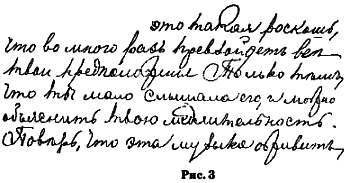 это такая роскошь,
что во много разъ превзойдетъ все
твои предположения Только тѣмъ,
что ты мало слышала его, и можно
объяснить твою медлительность.
Поверь, что эта музыка
Рис. 3